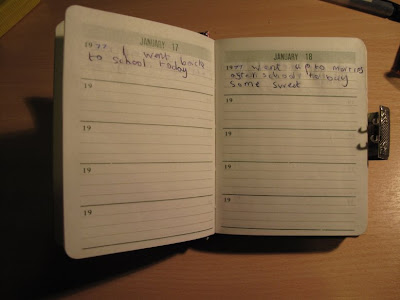 JANUARY 17
1977. I went back
to school today
19
19
19
19
JANUARY 18
1977 Went up to Morris
after school to buy
some sweet
19
19
19
19